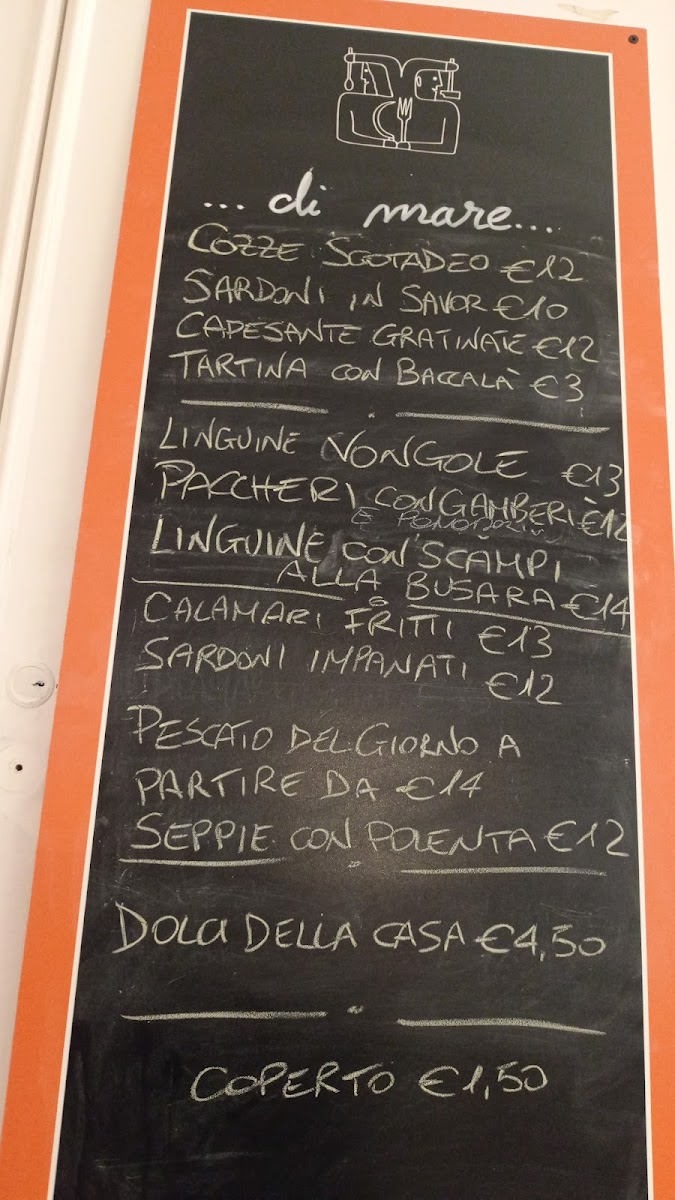 ... di mare...
COZZE SCOTADEO €12
SARDONI IN SAVOR €10
CAPESANTE GRATINATE €12
TARTINA CON BACCALÀ €3
LINGUINE VONGOLE €13
PACCHERI CON GAMBERI €12
E POMODORI
LINGUINE CON SCAMPI
ALLA BUSARA €14
CALAMARI FRITTI €13
SARDONI IMPANATI €12
PESCATO DEL GIORNO A
PARTIRE DA €14
SEPPIE CON POLENTA €12
DOLCI DELLA CASA €4,50
COPERTO €1,50